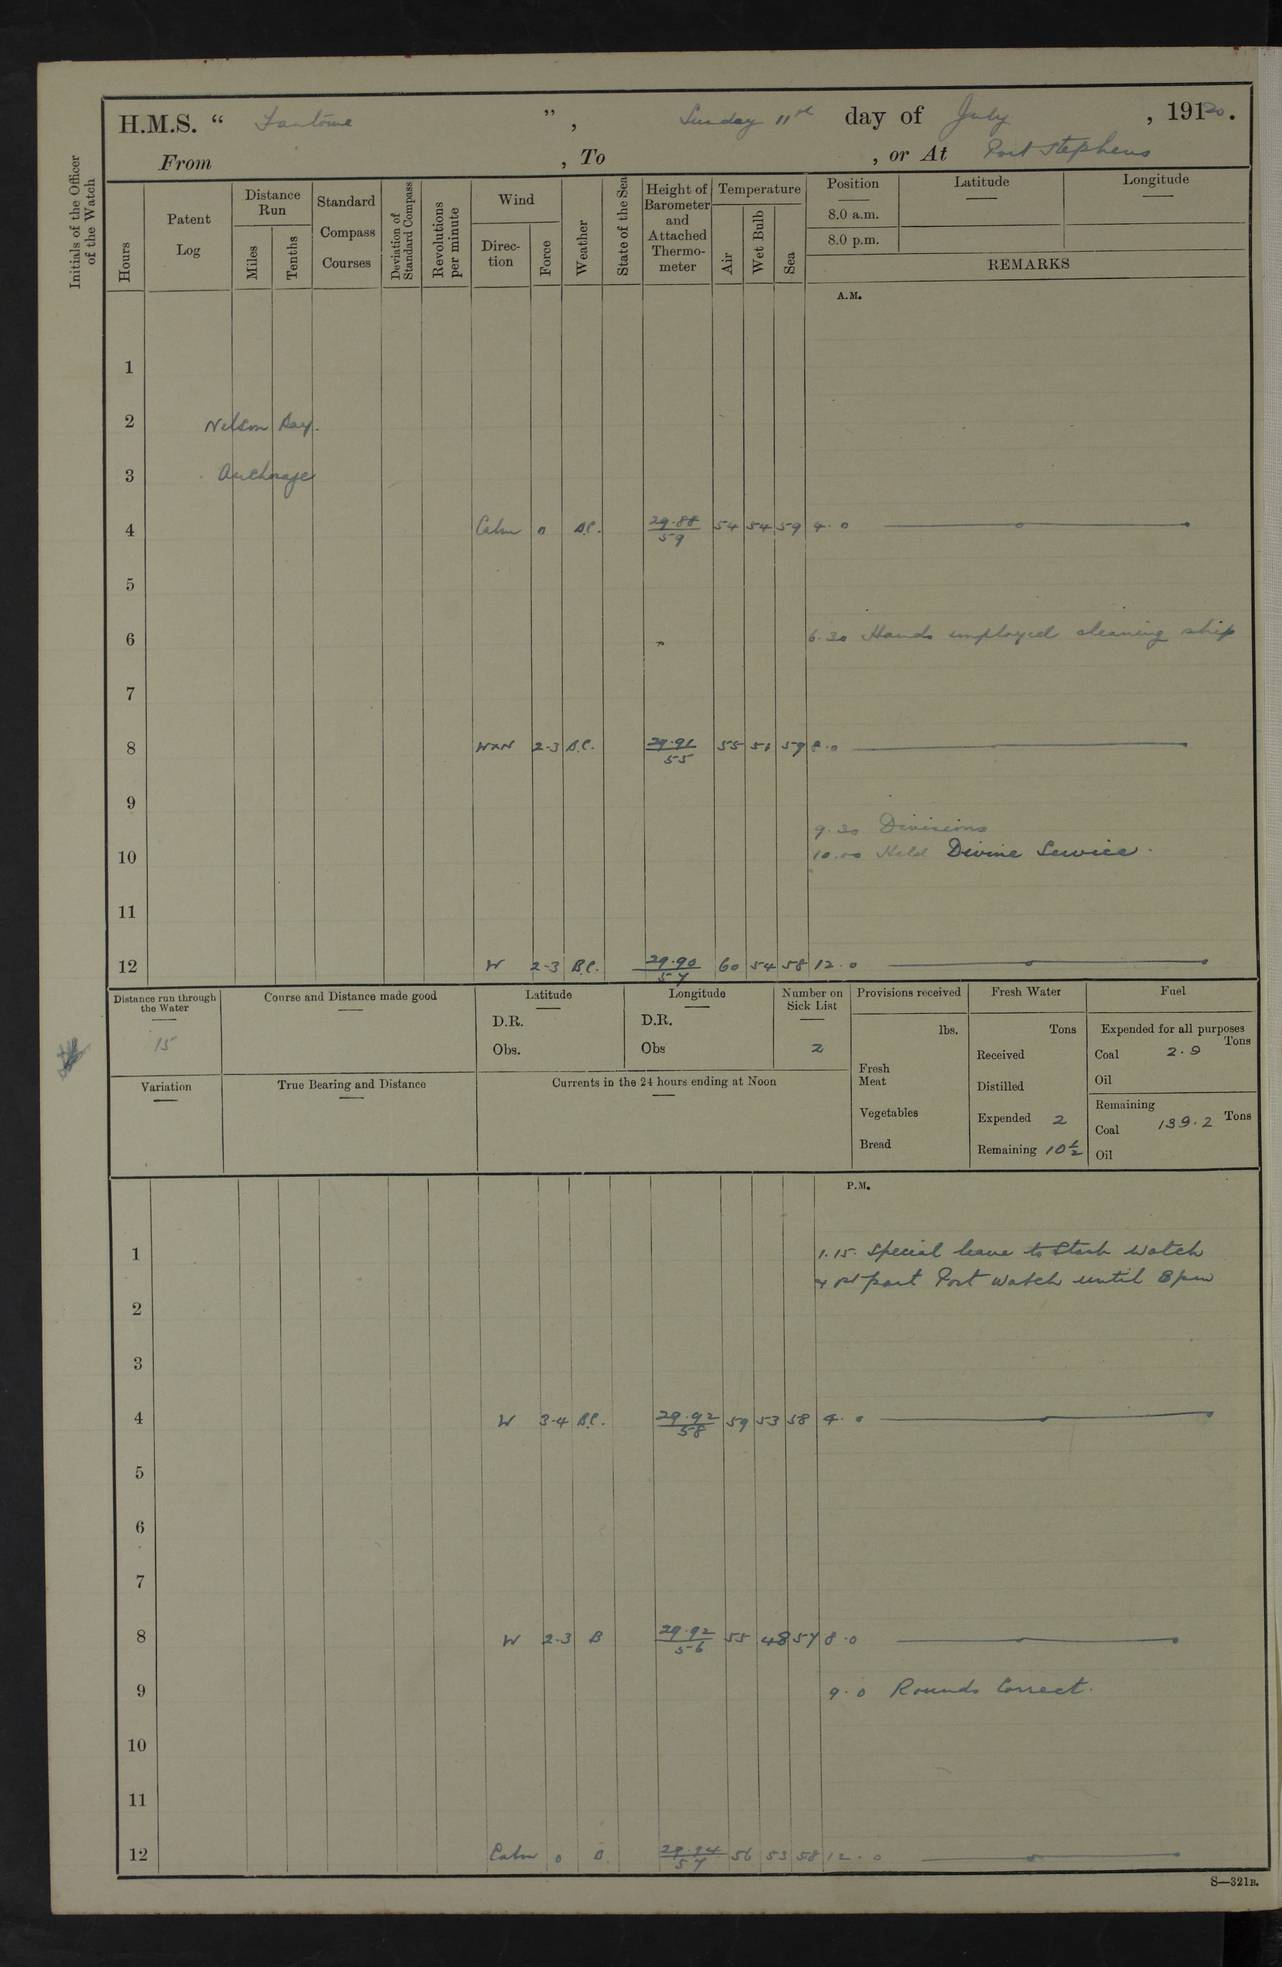 H.M.S. “ Fantome ” , Sunday 11th day of July , 191 20 .
From , To , or At Port Stephens
Initials of the Officer of the Watch
Hours
Patent Log
Distance Run
Miles
Tenths
Standard Compass Courses
Deviation of Standard Compass
Revolutions per minute
Wind
Direc-tion
Force
Weather
State of the Sea
Height of Barometer and Attached Thermo-meter
Temperature
Air
Wet Bulb
Sea
Position
8.0 a.m.
8.0 p.m.
Latitude
Longitude
REMARKS
A.M.
1
2 Nelson Bay.
3 Anchorage
4 Calm 0 B.C. 29.88 / 59 54 54 59 4.0
5
6 6.30 Hands employed cleaning ship
7
8 WxN 2-3 B.C. 29.91 / 55 55 51 59 8.0
9
9.30 Divisions
10 10.00 Held Divine Service.
11
12 W 2-3 B.C. 29.90 / 57 60 54 58 12.0
Distance run through the Water
15
Course and Distance made good
Latitude
D.R.
Obs.
Longitude
D.R.
Obs
Number on Sick List
2
Provisions received
lbs.
Fresh Meat
Vegetables
Bread
Fresh Water
Tons
Received
Distilled
Expended 2
Remaining 10½
Fuel
Expended for all purposes
Coal 2.9 Tons
Oil
Remaining
Coal 139.2 Tons
Oil
Variation
True Bearing and Distance
Currents in the 24 hours ending at Noon
P.M.
1 1.15. Special leave to Starb Watch
part Port Watch until 8 pm
2
3
4 W 3-4 B.C. 29.92 / 58 59 53 58 4.0
5
6
7
8 W 2-3 B 29.92 / 56 55 48 57 8.0
9 9.0 Rounds Correct.
10
11
12 Calm 0 B 29.94 / 57 56 53 58 12.0
S—321B.